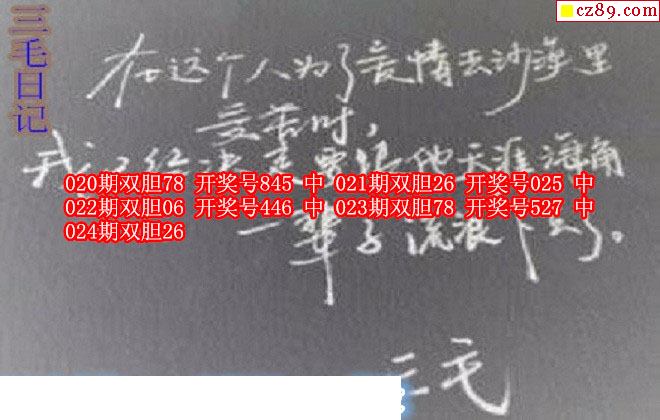 cz89.com
三毛日记
在这个人为了爱情去沙漠里
受苦时，
我已经决定要跟他天涯海角
020期双胆78 开奖号845 中 021期双胆26 开奖号025 中
022期双胆06 开奖号446 中 023期双胆78 开奖号527 中
024期双胆26
一辈子流浪下去了。
三毛